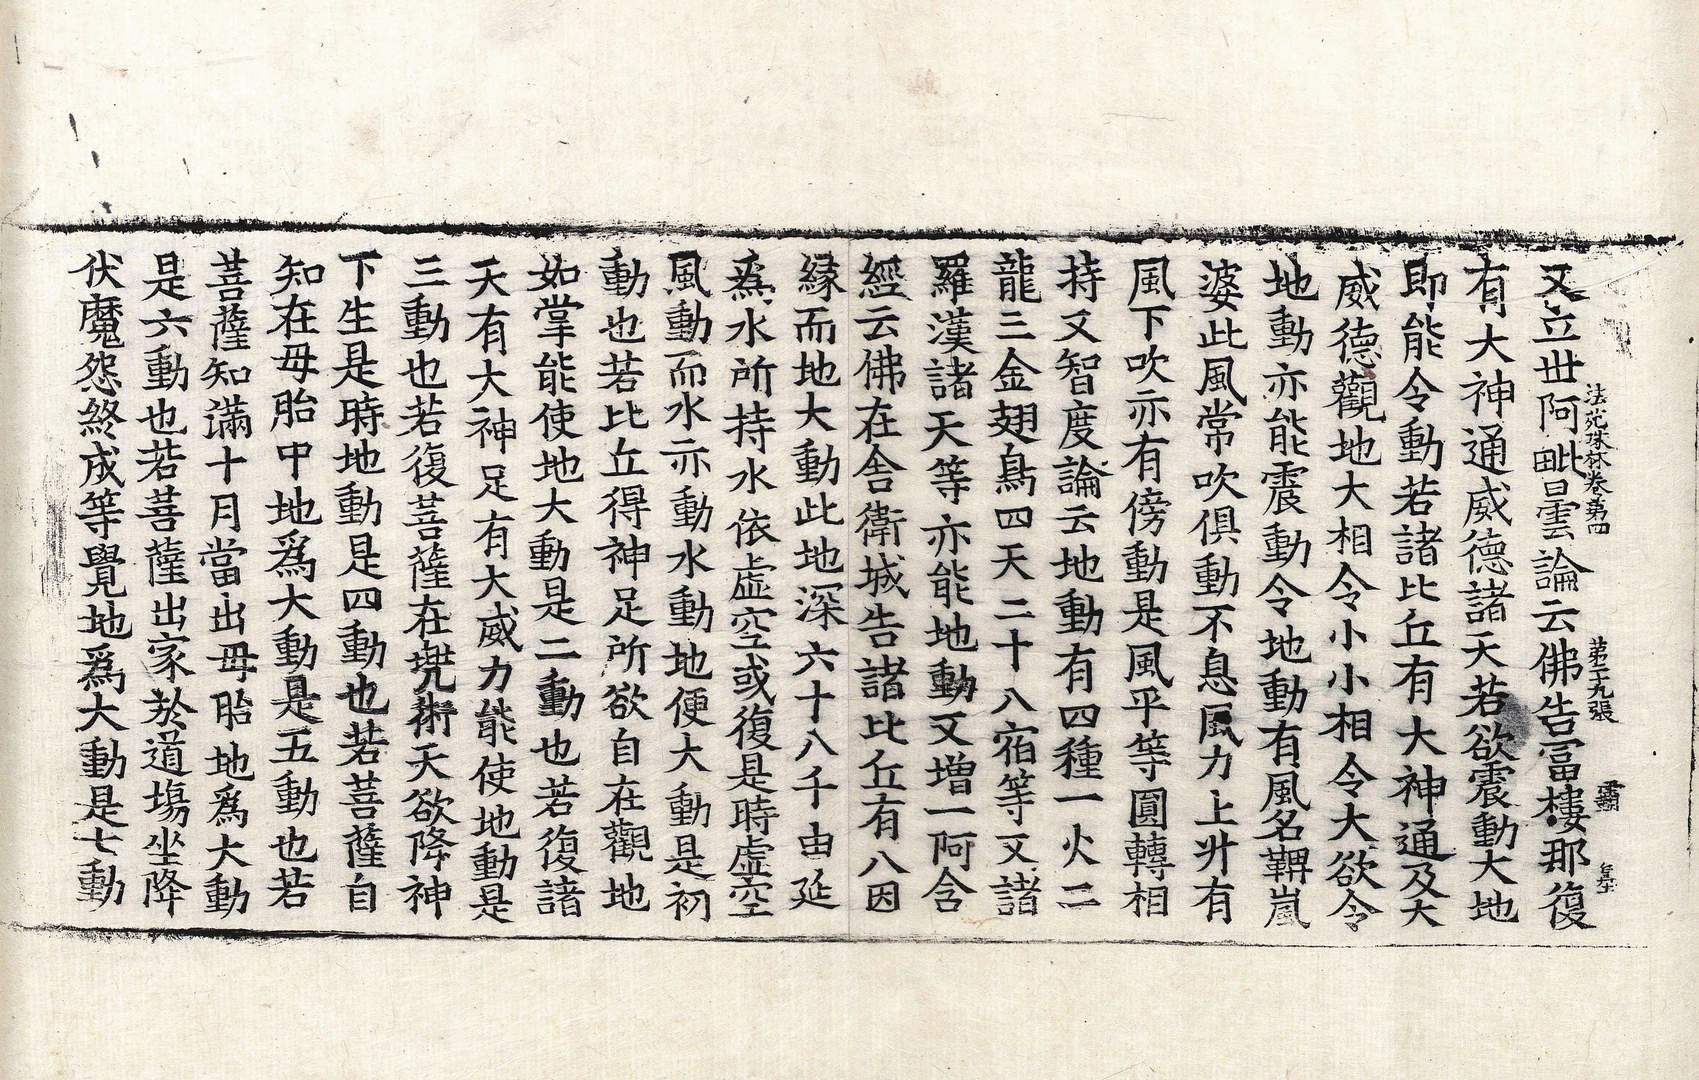 法苑珠林卷第四 第二十九張 覇
又立世阿毗曇論云佛告富樓那復
有大神通威德諸天若欲震動大地
即能令動若諸比丘有大神通及大
威德觀地大相令小小相令大欲令
地動亦能震動令地動有風名鞞嵐
婆此風常吹俱動不息風力上升有
風下吹亦有傍動是風平等圓轉相
持又智度論云地動有四種一火二
龍三金翅鳥四天二十八宿等又諸
羅漢諸天等亦能地動又增一阿含
經云佛在舍衛城告諸比丘有八因
緣而地大動此地深六十八千由延
為水所持水依虛空或復是時虛空
風動而水亦動水動地便大動是初
動也若比丘得神足所欲自在觀地
如掌能使地大動是二動也若復諸
天有大神足有大威力能使地動是
三動也若復菩薩在兜術天欲降神
下生是時地動是四動也若菩薩自
知在母胎中地爲大動是五動也若
菩薩知滿十月當出母胎地爲大動
是六動也若菩薩出家於道場坐降
伏魔怨終成等覺地爲大動是七動